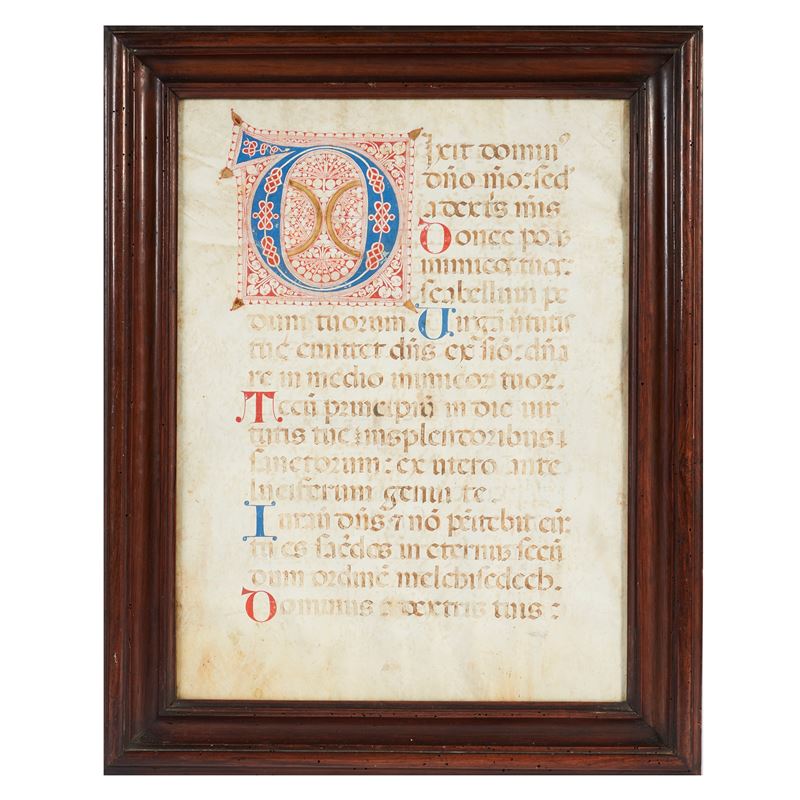 Dixit domin⁹
dño mo: sed
a dextis mis
Donec pona
inimicos tuos:
scabellum pe
dum tuorum. Uirgã ũtutis
tue emittet dñs ex sio: dña
re in medio inimicoꝝ tuoꝝ.
Tecũ principiũ in die uir
tutis tue: in splendoribus
sanctorum: ex utero ante
luciferum genui te
Iurauit dñs ⁊ nõ penitebit eũ:
tu es sacẽdos in eternus secũ
dum ordinẽ melchisedech.
Dominus a dextris tuis: